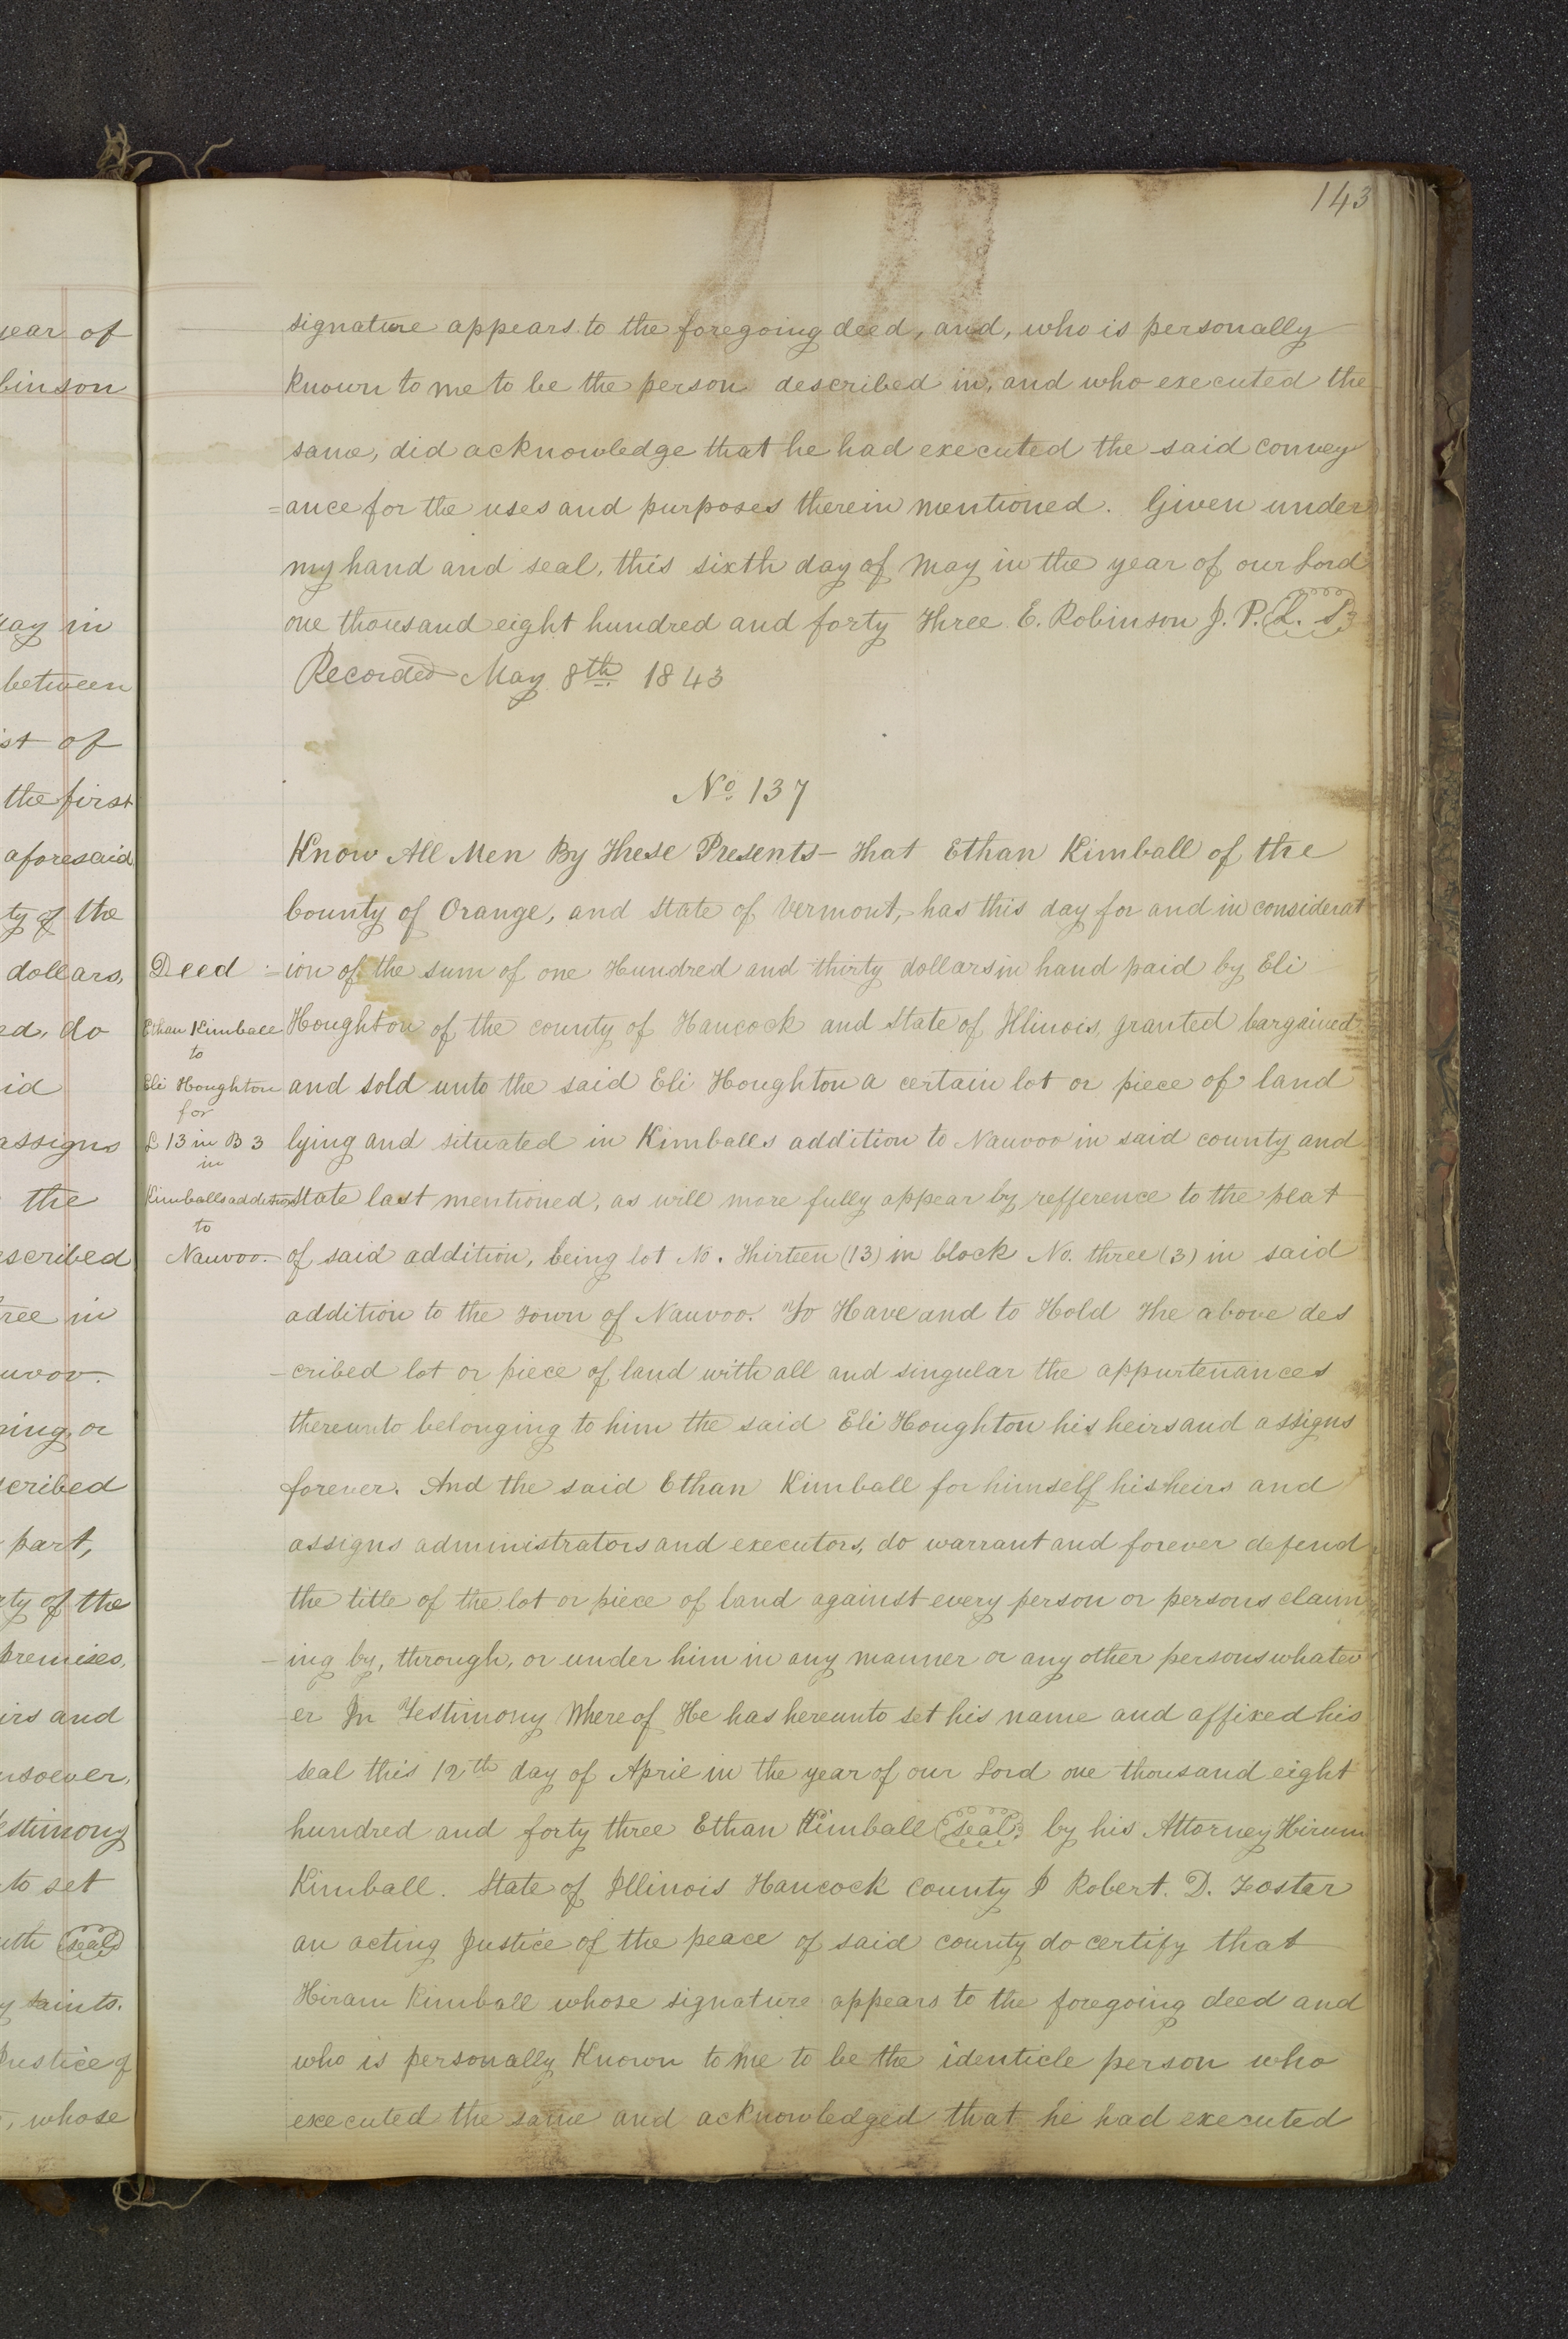 year of
binson
ay in
between
st of
the first
aforesaid
ty of the
dollars,
ed, do
id
assigns
the
escribed
ree in
uvoo.
ning, or
scribed
part,
rty of the
premises,
irs and
nsoever,
estimony
to set
ith seal
y saints.
Justice of
, whose
143
signature appears to the foregoing deed, and, who is personally
known to me to be the person described in, and who executed the
same, did acknowledge that he had executed the said convey
=ance for the uses and purposes therein mentioned. Given under
my hand and seal, this sixth day of May in the year of our Lord
one thousand eight hundred and forty Three E. Robinson J. P. L. S.
Recorded May 8th 1843
No. 137
Deed
Ethan Kimball
to
Eli Houghton
for
L 13 in B 3
in
Kimballs addition
to
Nauvoo.
Know All Men By These Presents - That Ethan Kimball of the
County of Orange, and State of Vermont, has this day for and in considerat
=ion of the sum of one Hundred and thirty dollars in hand paid by Eli
Houghton of the county of Hancock and State of Illinois, granted bargained
and sold unto the said Eli Houghton a certain lot or piece of land
lying and situated in Kimballs addition to Nauvoo in said county and
State last mentioned, as will more fully appear by refference to the plat
of said addition, being lot No. Thirteen (13) in block No. three (3) in said
addition to the Town of Nauvoo. To Have and to Hold The above des
-cribed lot or piece of land with all and singular the appurtenances
thereunto belonging to him the said Eli Houghton his heirs and assigns
forever. And the said Ethan Kimball for himself his heirs and
assigns administrators and executors, do warrant and forever defend
the title of the lot or piece of land against every person or persons claim
-ing by, through, or under him in any manner or any other persons whatev
-er In Testimony Whereof He has hereunto set his name and affixed his
seal this 12th day of April in the year of our Lord one thousand eight
hundred and forty three Ethan Kimball seal by his Attorney Hirum
Kimball. State of Illinois Hancock County I Robert. D. Foster
an acting Justice of the peace of said county do certify that
Hiram Kimball whose signature appears to the foregoing deed and
who is personally Known to me to be the identicle person who
executed the same and acknowledged that he had executed